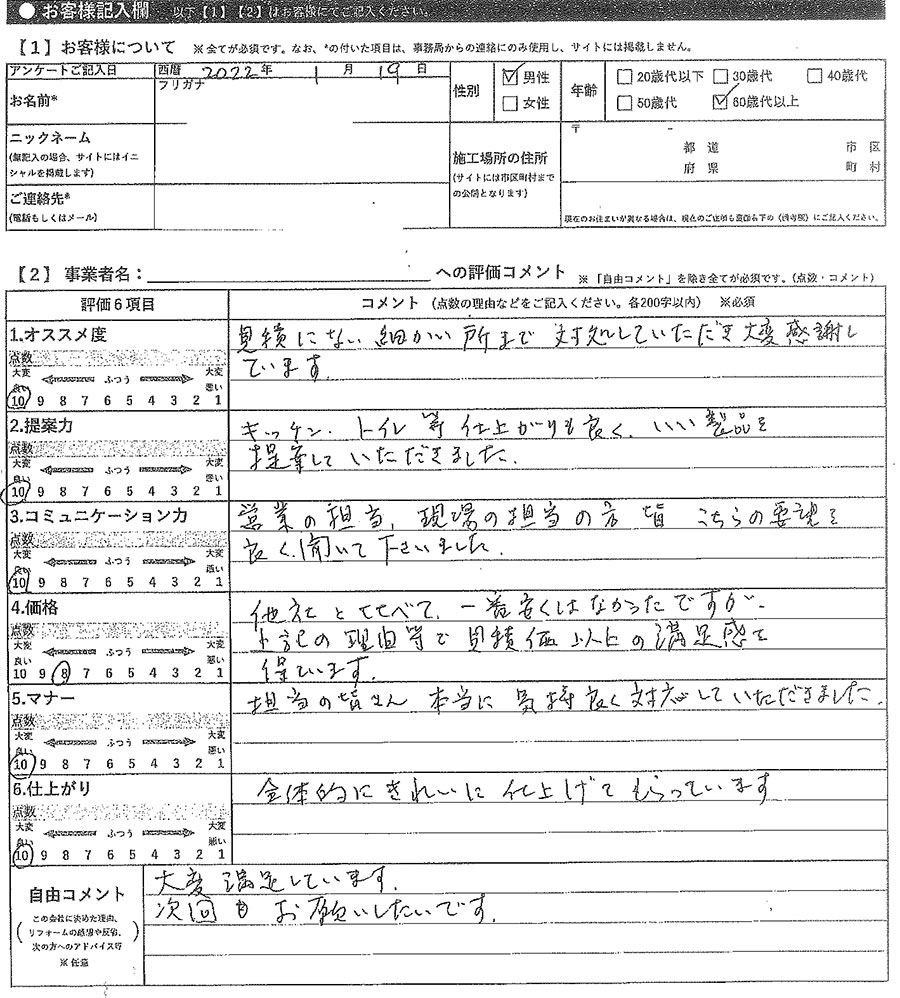 ● お客様記入欄 以下【1】【2】はお客様にてご記入ください。
【1】お客様について ※全てが必須です。なお、*の付いた項目は、事務局からの連絡にのみ使用し、サイトには掲載しません。
アンケートご記入日 西暦 2022年 1月 19日
お名前* フリガナ
性別 ☑男性 □女性
年齢 □20歳代以下 □30歳代 □40歳代
□50歳代 ☑60歳代以上
ニックネーム
(無記入の場合、サイトにはイニ
シャルを掲載します)
施工場所の住所
(サイトには市区町村まで
の公開となります)
〒 -
都 道 市 区
府 県 町 村
現在のお住まいが異なる場合は、現在のご住所も裏面右下の(備考欄)にご記入ください。
ご連絡先*
(電話もしくはメール)
【2】事業者名: への評価コメント ※「自由コメント」を除き全てが必須です。(点数・コメント)
評価6項目 コメント (点数の理由などをご記入ください。各200字以内) ※必須
1.オススメ度
点数
大変 ふつう 大変
良い 悪い
10 9 8 7 6 5 4 3 2 1
見積にない細かい所まで対処していただき大変感謝し
ています.
2.提案力
点数
大変 ふつう 大変
良い 悪い
10 9 8 7 6 5 4 3 2 1
キッチン. トイレ等仕上がりも良く. いい製品を
提案していただきました.
3.コミュニケーション力
点数
大変 ふつう 大変
良い 悪い
10 9 8 7 6 5 4 3 2 1
営業の担当, 現場の担当の方 皆 こちらの要望を
良く聞いて下さいました.
4.価格
点数
大変 ふつう 大変
良い 悪い
10 9 8 7 6 5 4 3 2 1
他社とくらべて. 一番安くはなかったですが.
上記の理由等で見積価以上の満足感を
得ています.
5.マナー
点数
大変 ふつう 大変
良い 悪い
10 9 8 7 6 5 4 3 2 1
担当の皆さん 本当に気持良く対応していただきました.
6.仕上がり
点数
大変 ふつう 大変
良い 悪い
10 9 8 7 6 5 4 3 2 1
全体的にきれいに仕上げてもらっています
自由コメント
(この会社に決めた理由、
リフォームの感想や反省、
次の方へのアドバイス等)
※任意
大変満足しています.
次回もお願いしたいです.